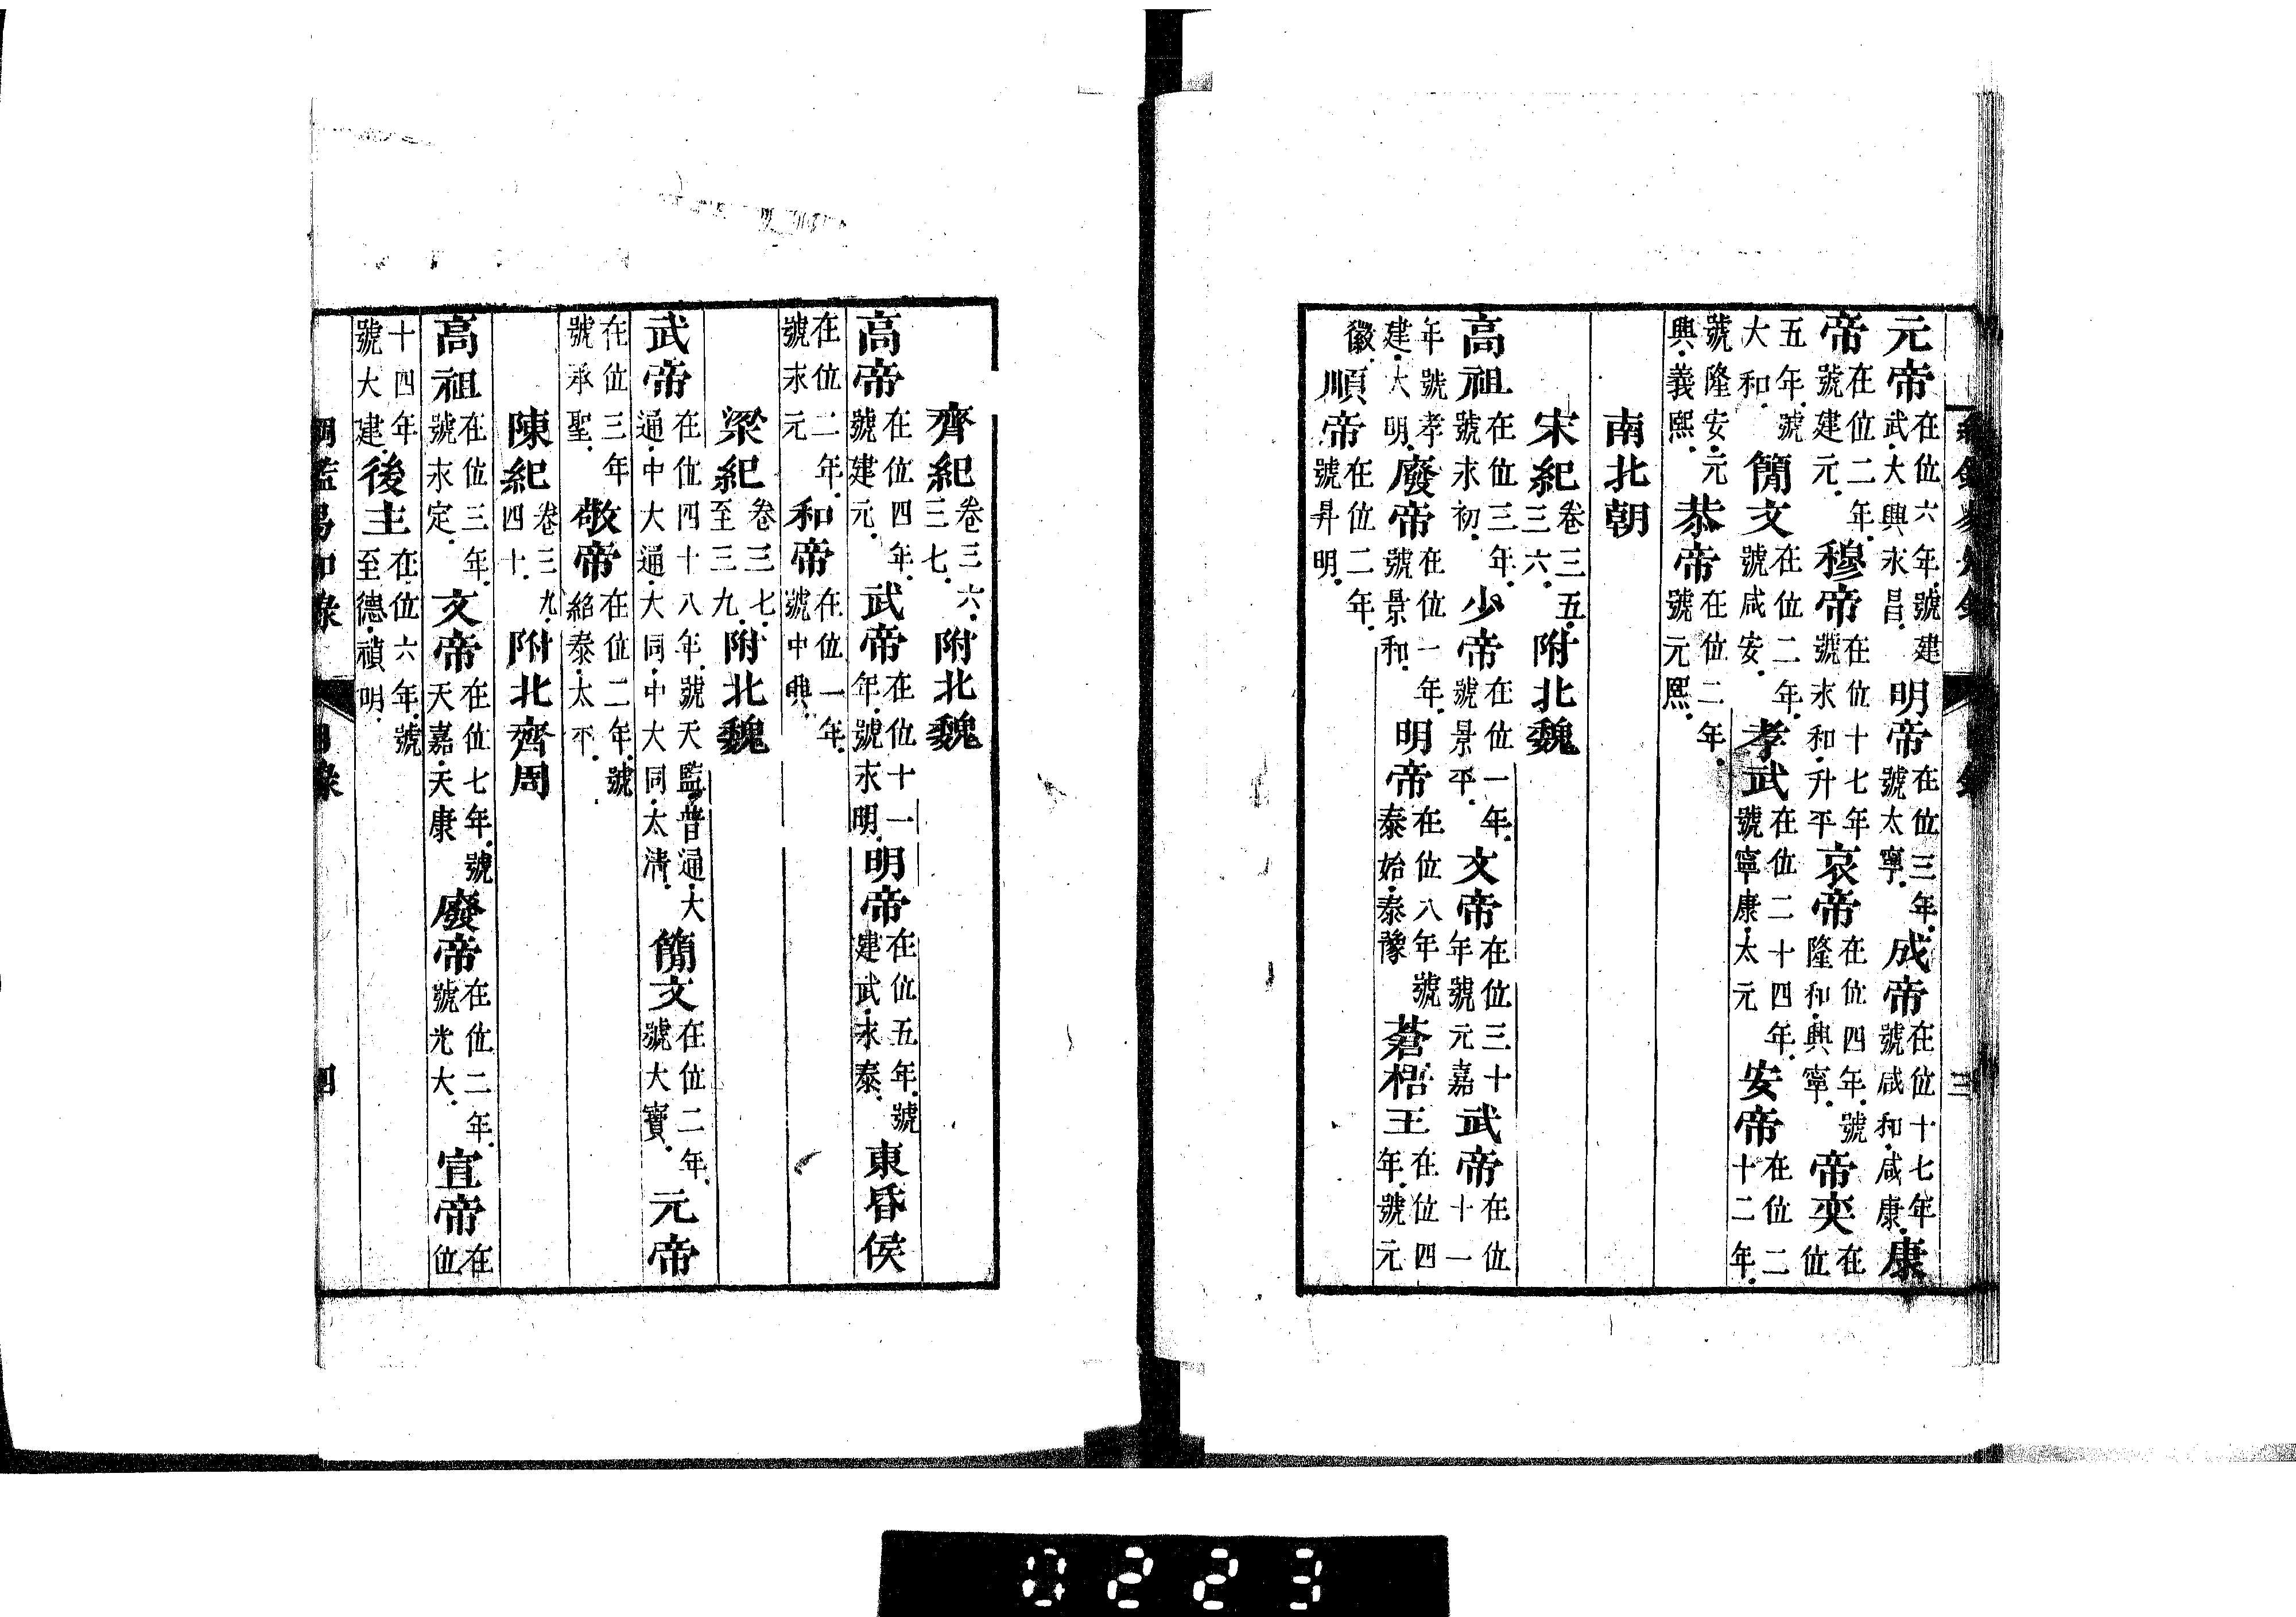 元帝在位六年號建武大興永昌明帝在位三年號太寧成帝在位十七年號咸和咸康康
帝在位二年號建元穆帝在位十七年號永和升平哀帝在位四年號隆和興寧帝奕在位
五年號大和簡文在位二年號咸安孝武在位二十四年號寧康太元安帝在位二十二年
號隆安元興義熙恭帝在位二年號元熙
南北朝
宋紀卷三五三六附北魏
高祖在位三年號永初少帝在位一年號景平文帝在位三十年號元嘉武帝在位十一
年號孝建大明廢帝在位一年號景和明帝在位八年號泰始泰豫蒼梧王在位四年號元
徽順帝在位二年號昇明
齊紀卷三六三七附北魏
高帝在位四年號建元武帝在位十一年號永明明帝在位五年號建武永泰東昏侯
在位二年號永元和帝在位一年號中興
梁紀卷三七至三九附北魏
武帝在位四十八年號天監普通大通中大通大同中大同太清簡文在位二年號大寶元帝
在位三年號承聖敬帝在位二年號紹泰太平
陳紀卷三九四十附北齊周
高祖在位三年號永定文帝在位七年號天嘉天康廢帝在位二年號光大宣帝在位
十四年號大建後主在位六年號至德禎明
0223